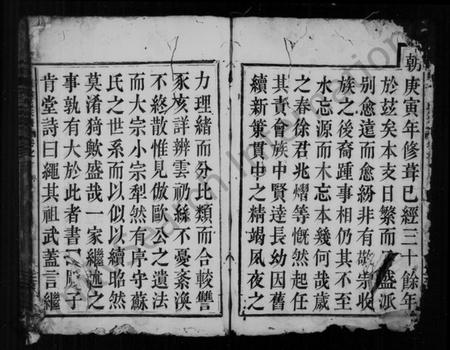 朝庚寅年修葺已經三十餘年
於玆矣本支日繁而 盛派
别愈遠而愈紛非有敬宗收
族之後裔踵事相仍其不至
水忘源而木忘本幾何哉歲
之春徐君兆熠等慨然起任
其責會族中賢達長幼因舊
續新策貫中之精竭夙夜之
力理緒而分比類而合較讐
豕亥詳辨雲礽絲不憂紊渙
不終散惟見倣歐公之遺法
而大宗小宗犁然有序守蘇
氏之世系而以似以續昭然
莫淆猗歟盛哉一家繼述之
事孰有大於此者書 子
肯堂詩曰繩其祖武蓋言繼